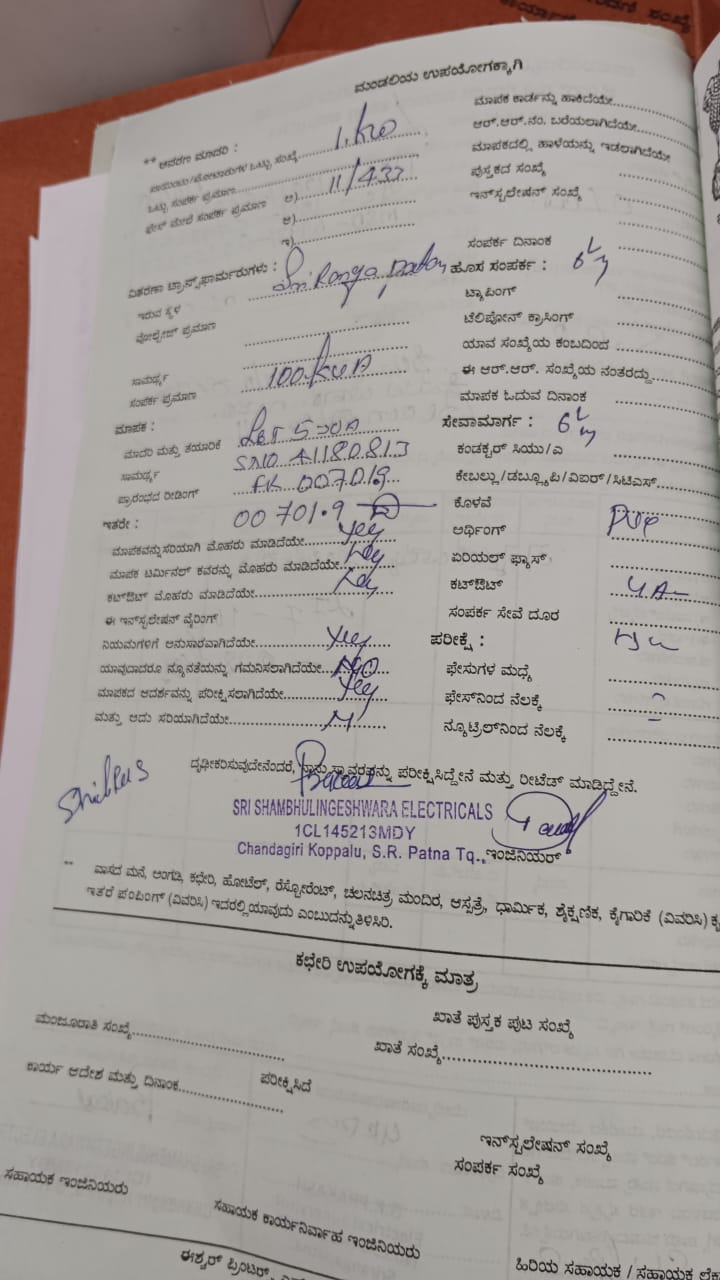 ಮಂಡಲಿಯ ಉಪಯೋಗಕ್ಕಾಗಿ
** ಆವರಣ ಮಾದರಿ :
ಒಟ್ಟು ಸಂಪರ್ಕ ಪ್ರಮಾಣ
ಫೇಸ್ ಮೇಲೆ ಸಂಪರ್ಕ ಪ್ರಮಾಣ ಅ) 11/433
ಆ)
ಇ)
ವಿತರಣಾ ಟ್ರಾನ್ಸ್‌ಫಾರ್ಮರುಗಳು :
ಇರುವ ಸ್ಥಳ
ವೋಲ್ಟೇಜ್ ಪ್ರಮಾಣ
ಸಾಮರ್ಥ್ಯ
ಸಂಪರ್ಕ ಪ್ರಮಾಣ 100 KVA
ಮಾಪಕ :
ಮಾದರಿ ಮತ್ತು ತಯಾರಿಕೆ L&T 5-30A
ಸಾಮರ್ಥ್ಯ SNO 41180813
ಪ್ರಾರಂಭದ ರೀಡಿಂಗ್ FR 007019
ಇತರೇ : 00701.9
ಮಾಪಕವನ್ನು ಸರಿಯಾಗಿ ಮೊಹರು ಮಾಡಿದೆಯೇ Yes
ಮಾಪಕ ಟರ್ಮಿನಲ್ ಕವರನ್ನು ಮೊಹರು ಮಾಡಿದೆಯೇ Yes
ಕಟ್‌ಔಟ್ ಮೊಹರು ಮಾಡಿದೆಯೇ Yes
ಈ ಇನ್‌ಸ್ಟಲೇಷನ್ ವೈರಿಂಗ್
ನಿಯಮಗಳಿಗೆ ಅನುಸಾರವಾಗಿದೆಯೇ Yes
ಯಾವುದಾದರೂ ನ್ಯೂನತೆಯನ್ನು ಗಮನಿಸಲಾಗಿದೆಯೇ NO
ಮಾಪಕದ ಆದರ್ಶವನ್ನು ಪರೀಕ್ಷಿಸಲಾಗಿದೆಯೇ Yes
ಮತ್ತು ಅದು ಸರಿಯಾಗಿದೆಯೇ
ಮಾಪಕ ಕಾರ್ಡನ್ನು ಹಾಕಿದೆಯೇ
ಆರ್.ಆರ್.ನಂ. ಬರೆಯಲಾಗಿದೆಯೇ
ಮಾಪಕದಲ್ಲಿ ಹಾಳೆಯನ್ನು ಇಡಲಾಗಿದೆಯೇ
ಪುಸ್ತಕದ ಸಂಖ್ಯೆ
ಇನ್‌ಸ್ಟಲೇಷನ್ ಸಂಖ್ಯೆ
ಸಂಪರ್ಕ ದಿನಾಂಕ
ಹೊಸ ಸಂಪರ್ಕ :
ಟ್ಯಾಪಿಂಗ್
ಟೆಲಿಫೋನ್ ಕ್ರಾಸಿಂಗ್
ಯಾವ ಸಂಖ್ಯೆಯ ಕಂಬದಿಂದ
ಈ ಆರ್.ಆರ್. ಸಂಖ್ಯೆಯ ನಂತರದ್ದು
ಮಾಪಕ ಓದುವ ದಿನಾಂಕ
ಸೇವಾಮಾರ್ಗ :
ಕಂಡಕ್ಟರ್ ಸಿಯು/ಎ
ಕೇಬಲ್ಲು/ಡಬ್ಲ್ಯೂಪಿ/ವಿಐರ್/ಸಿಟಿಎಸ್
ಕೊಳವೆ
ಅರ್ಥಿಂಗ್
ಏರಿಯಲ್ ಫ್ಯಾಸ್
ಕಟ್‌ಔಟ್
ಸಂಪರ್ಕ ಸೇವೆ ದೂರ
ಪರೀಕ್ಷೆ :
ಫೇಸುಗಳ ಮಧ್ಯೆ
ಫೇಸ್‌ನಿಂದ ನೆಲಕ್ಕೆ
ನ್ಯೂಟ್ರಲ್‌ನಿಂದ ನೆಲಕ್ಕೆ
ದೃಢೀಕರಿಸುವುದೇನೆಂದರೆ, ನಾನು ಸ್ಥಾವರವನ್ನು ಪರೀಕ್ಷಿಸಿದ್ದೇನೆ ಮತ್ತು ರೀಟೆಡ್ ಮಾಡಿದ್ದೇನೆ.
SRI SHAMBHULINGESHWARA ELECTRICALS
1CL145213MDY
Chandagiri Koppalu, S.R. Patna Tq., ಇಂಜಿನಿಯರ್
** ವಾಸದ ಮನೆ, ಅಂಗಡಿ, ಕಛೇರಿ, ಹೋಟೆಲ್, ರೆಸ್ಟೋರೆಂಟ್, ಚಲನಚಿತ್ರ ಮಂದಿರ, ಆಸ್ಪತ್ರೆ, ಧಾರ್ಮಿಕ, ಶೈಕ್ಷಣಿಕ, ಕೈಗಾರಿಕೆ (ವಿವರಿಸಿ)
ಇತರೆ ಪಂಪಿಂಗ್ (ವಿವರಿಸಿ) ಇದರಲ್ಲಿ ಯಾವುದು ಎಂಬುದನ್ನು ತಿಳಿಸಿರಿ.
ಕಛೇರಿ ಉಪಯೋಗಕ್ಕೆ ಮಾತ್ರ
ಮಂಜೂರಾತಿ ಸಂಖ್ಯೆ
ಖಾತೆ ಪುಸ್ತಕ ಪುಟ ಸಂಖ್ಯೆ
ಖಾತೆ ಸಂಖ್ಯೆ
ಕಾರ್ಯ ಆದೇಶ ಮತ್ತು ದಿನಾಂಕ
ಪರೀಕ್ಷಿಸಿದೆ
ಇನ್‌ಸ್ಟಲೇಷನ್ ಸಂಖ್ಯೆ
ಸಂಪರ್ಕ ಸಂಖ್ಯೆ
ಸಹಾಯಕ ಇಂಜಿನಿಯರು
ಸಹಾಯಕ ಕಾರ್ಯನಿರ್ವಾಹ ಇಂಜಿನಿಯರು
ಹಿರಿಯ ಸಹಾಯಕ / ಸಹಾಯಕ
ಈಶ್ವರ್ ಪ್ರಿಂಟರ್ಸ್,